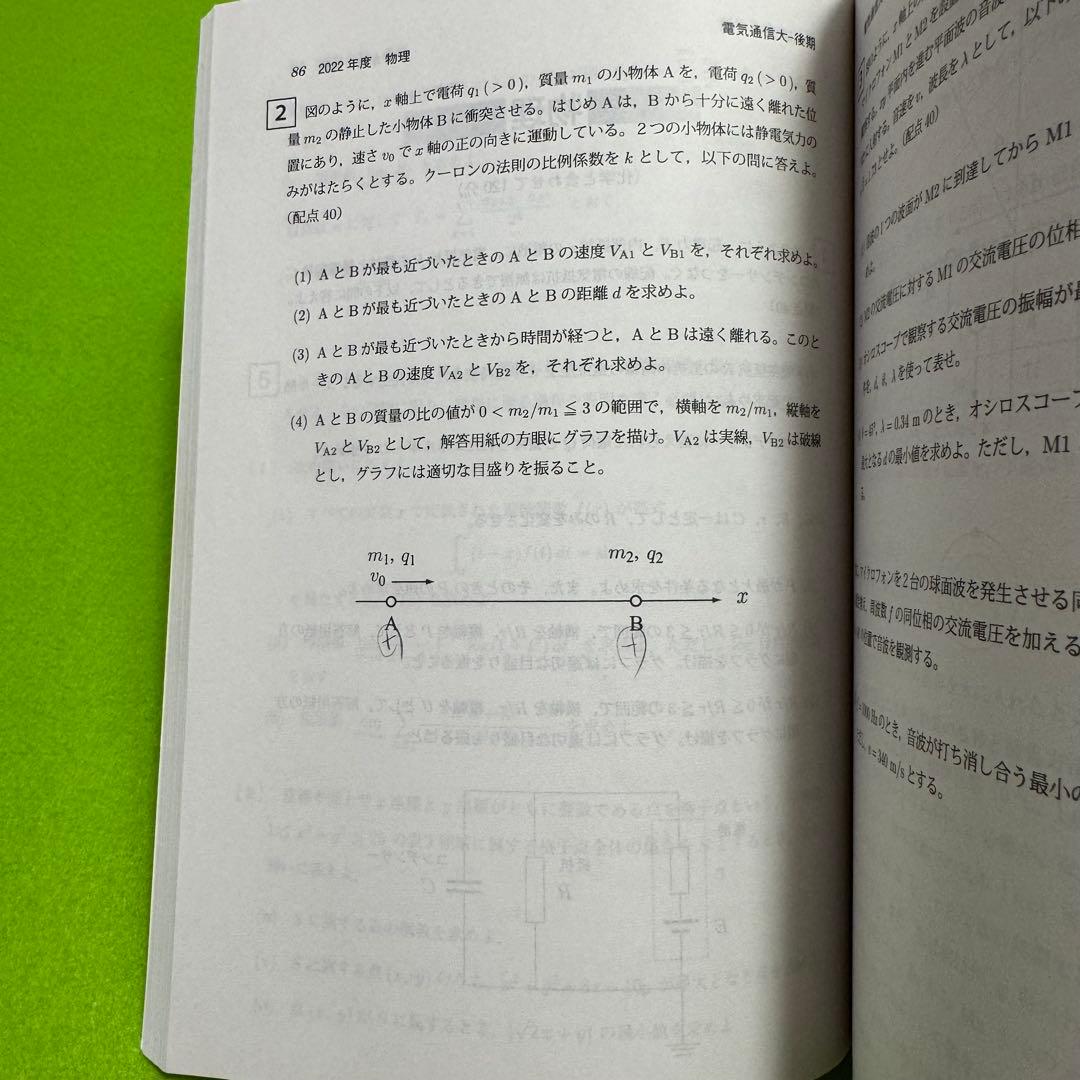 電気通信大-後期
86 2022年度 物理
2 図のように，x軸上で電荷 q1 (>0)，質量 m1 の小物体Aを，電荷 q2 (>0)，質
量 m2 の静止した小物体Bに衝突させる。はじめAは，Bから十分に遠く離れた位
置にあり，速さ v0 でx軸の正の向きに運動している。2つの小物体には静電気力の
みがはたらくとする。クーロンの法則の比例係数をkとして，以下の問に答えよ。
(配点40)
(1) AとBが最も近づいたときのAとBの速度 VA1 と VB1 を，それぞれ求めよ。
(2) AとBが最も近づいたときのAとBの距離dを求めよ。
(3) AとBが最も近づいたときから時間が経つと，AとBは遠く離れる。このと
きのAとBの速度 VA2 と VB2 を，それぞれ求めよ。
(4) AとBの質量の比の値が 0 < m2/m1 ≦ 3 の範囲で，横軸を m2/m1，縦軸を
VA2 と VB2 として，解答用紙の方眼にグラフを描け。VA2 は実線，VB2 は破線
とし，グラフには適切な目盛りを振ること。
m1, q1
v0
m2, q2
x
A
B
+
+
平面内を進む平面波の音波
(配点40)
の1つの波面がM2に到達してからM1
の交流電圧に対するM1の交流電圧の位相
オシロスコープで観察する交流電圧の振幅が最
λを使って表せ。
λ = 0.34 m のとき，オシロスコープ
となるdの最小値を求めよ。ただし，M1
マイクロフォンを2台の球面波を発生させる同
周波数 f の同位相の交流電圧を加える
位置で音波を観測する。
のとき，音波が打ち消し合う最小の
= 340 m/s とする。